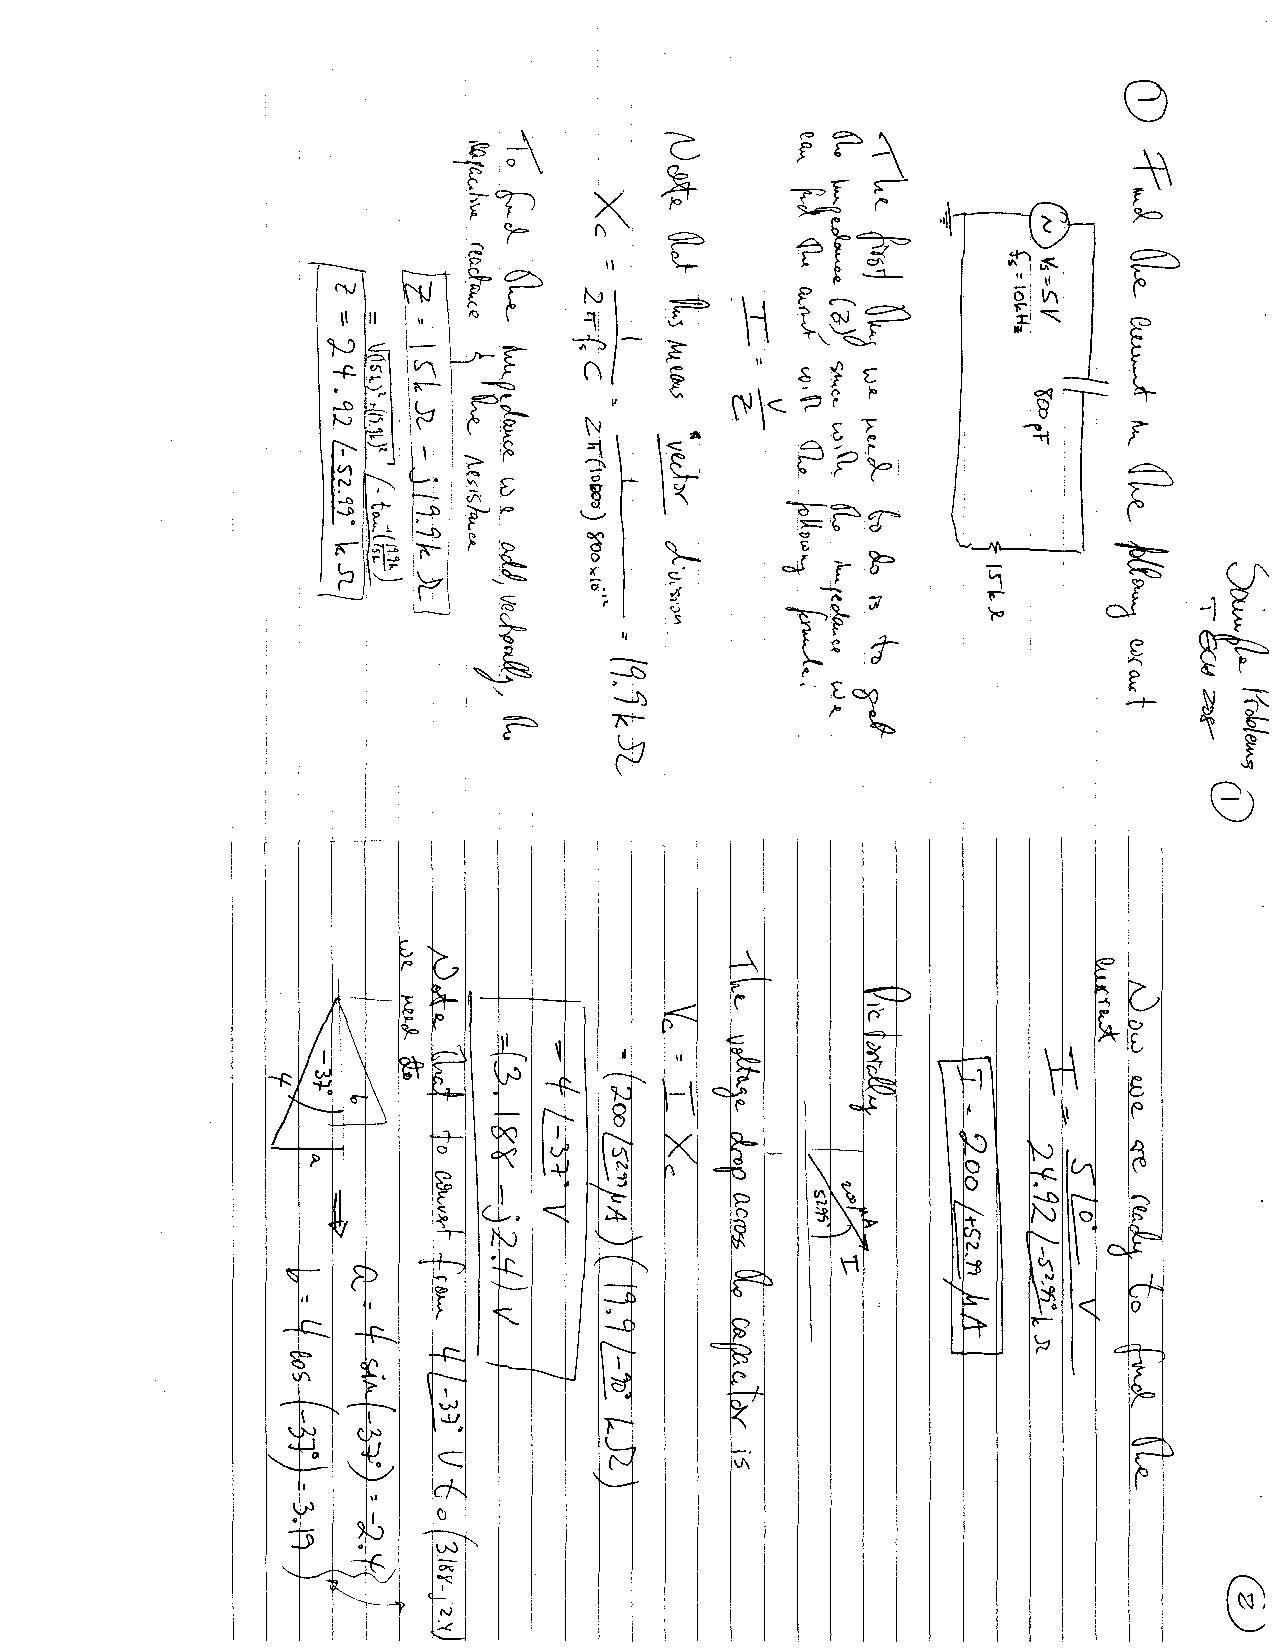 Sample Problems ①
TECH 208
① Find the current in the following circuit
Vs = 5V
fs = 10kHz
800pF
15kΩ
The first thing we need to do is to get
the impedance (Z) since with the impedance we
can find the current with the following formula:
I = V/Z
Note that this means "vector division
Xc = 1/(2πfsC) = 1/(2π(10000)800x10⁻¹²) = 19.9kΩ
To find the impedance we add, vectorially, the
capacitive reactance & the resistance
Z = 15kΩ - j19.9kΩ
= √((15k)²+(19.9k)²) /-tan⁻¹(19.9k/15k)
Z = 24.92 /-52.99° kΩ
②
Now we are ready to find the
current
I = 5/0° V / 24.92/-52.99° kΩ
I = 200 /+52.99 μA
Pictorially
200μA
I
52.99°
The voltage drop across the capacitor is
Vc = I Xc
= (200/52.99 μA)(19.9/-90° kΩ)
= 4/-37° V
= (3.188 - j2.4) V
Note that to convert from 4/-37° V to (3.188-j2.4)
we need to
-37°
4
b
a
⇒
a = 4 sin(-37°) = -2.4
b = 4 cos(-37°) = 3.19